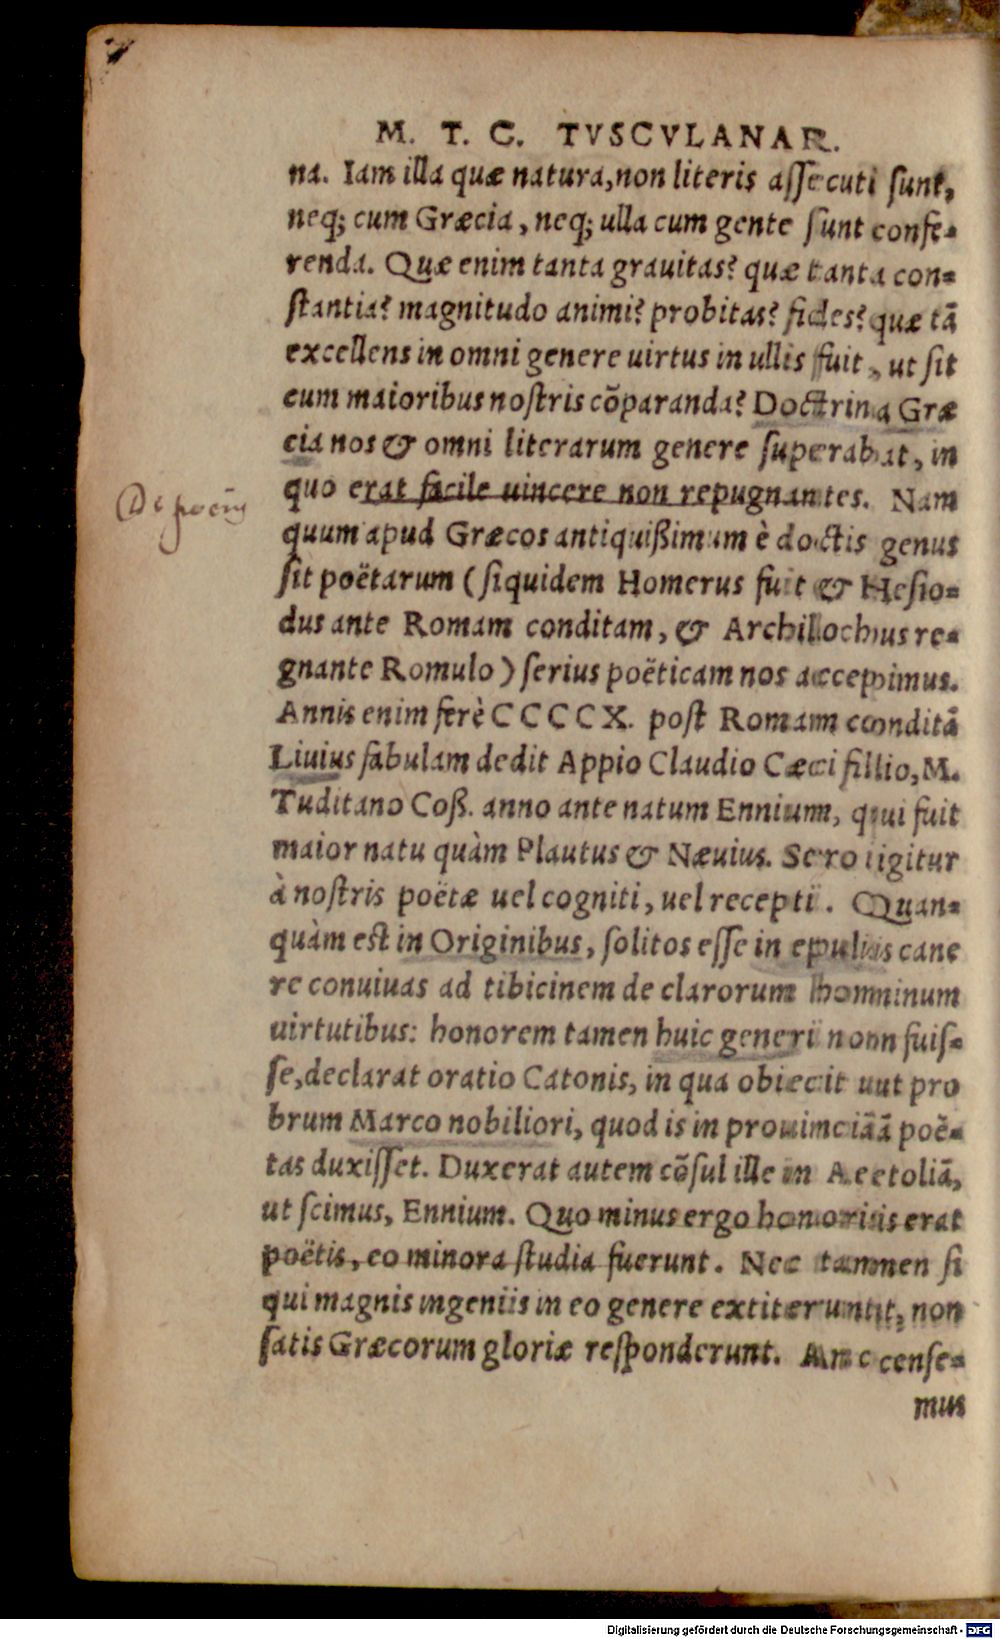 M. T. C. TVSCVLANAR.
na. Iam illa quæ natura, non literis aſſecuti ſunt,
neq; cum Græcia, neq; ulla cum gente ſunt confe-
renda. Quæ enim tanta grauitas? quæ tanta con-
ſtantia? magnitudo animi? probitas? fides? quæ tã
excellens in omni genere uirtus in ullis fuit, ut ſit
cum maioribus noſtris cõparanda? Doctrina Græ
cia nos & omni literarum genere ſuperabat, in
quo erat facile uincere non repugnantes. Nam
De poetis
quum apud Græcos antiquißimum è doctis genus
ſit poëtarum (ſiquidem Homerus fuit & Heſio-
dus ante Romam conditam, & Archilochus re-
gnante Romulo) ſerius poëticam nos accepimus.
Annis enim ferè CCCCX. poſt Romam conditã
Liuius fabulam dedit Appio Claudio Cæci filio, M.
Tuditano Coß. anno ante natum Ennium, qui fuit
maior natu quàm Plautus & Næuius. Sero igitur
à noſtris poëtæ uel cogniti, uel recepti. Quan-
quàm est in Originibus, ſolitos eſſe in epulis cane
re conuiuas ad tibicinem de clarorum hominum
uirtutibus: honorem tamen huic generi non fuiſ-
ſe, declarat oratio Catonis, in qua obiecit ut pro
brum Marco nobiliori, quod is in prouinciã poë-
tas duxiſſet. Duxerat autem cõſul ille in Aetoliã,
ut ſcimus, Ennium. Quo minus ergo honoris erat
poëtis, eo minora ſtudia fuerunt. Nec tamen ſi
qui magnis ingeniis in eo genere extiterunt, non
ſatis Græcorum gloriæ reſponderunt. An cenſe-
mus
Digitalisierung gefördert durch die Deutsche Forschungsgemeinschaft - DFG